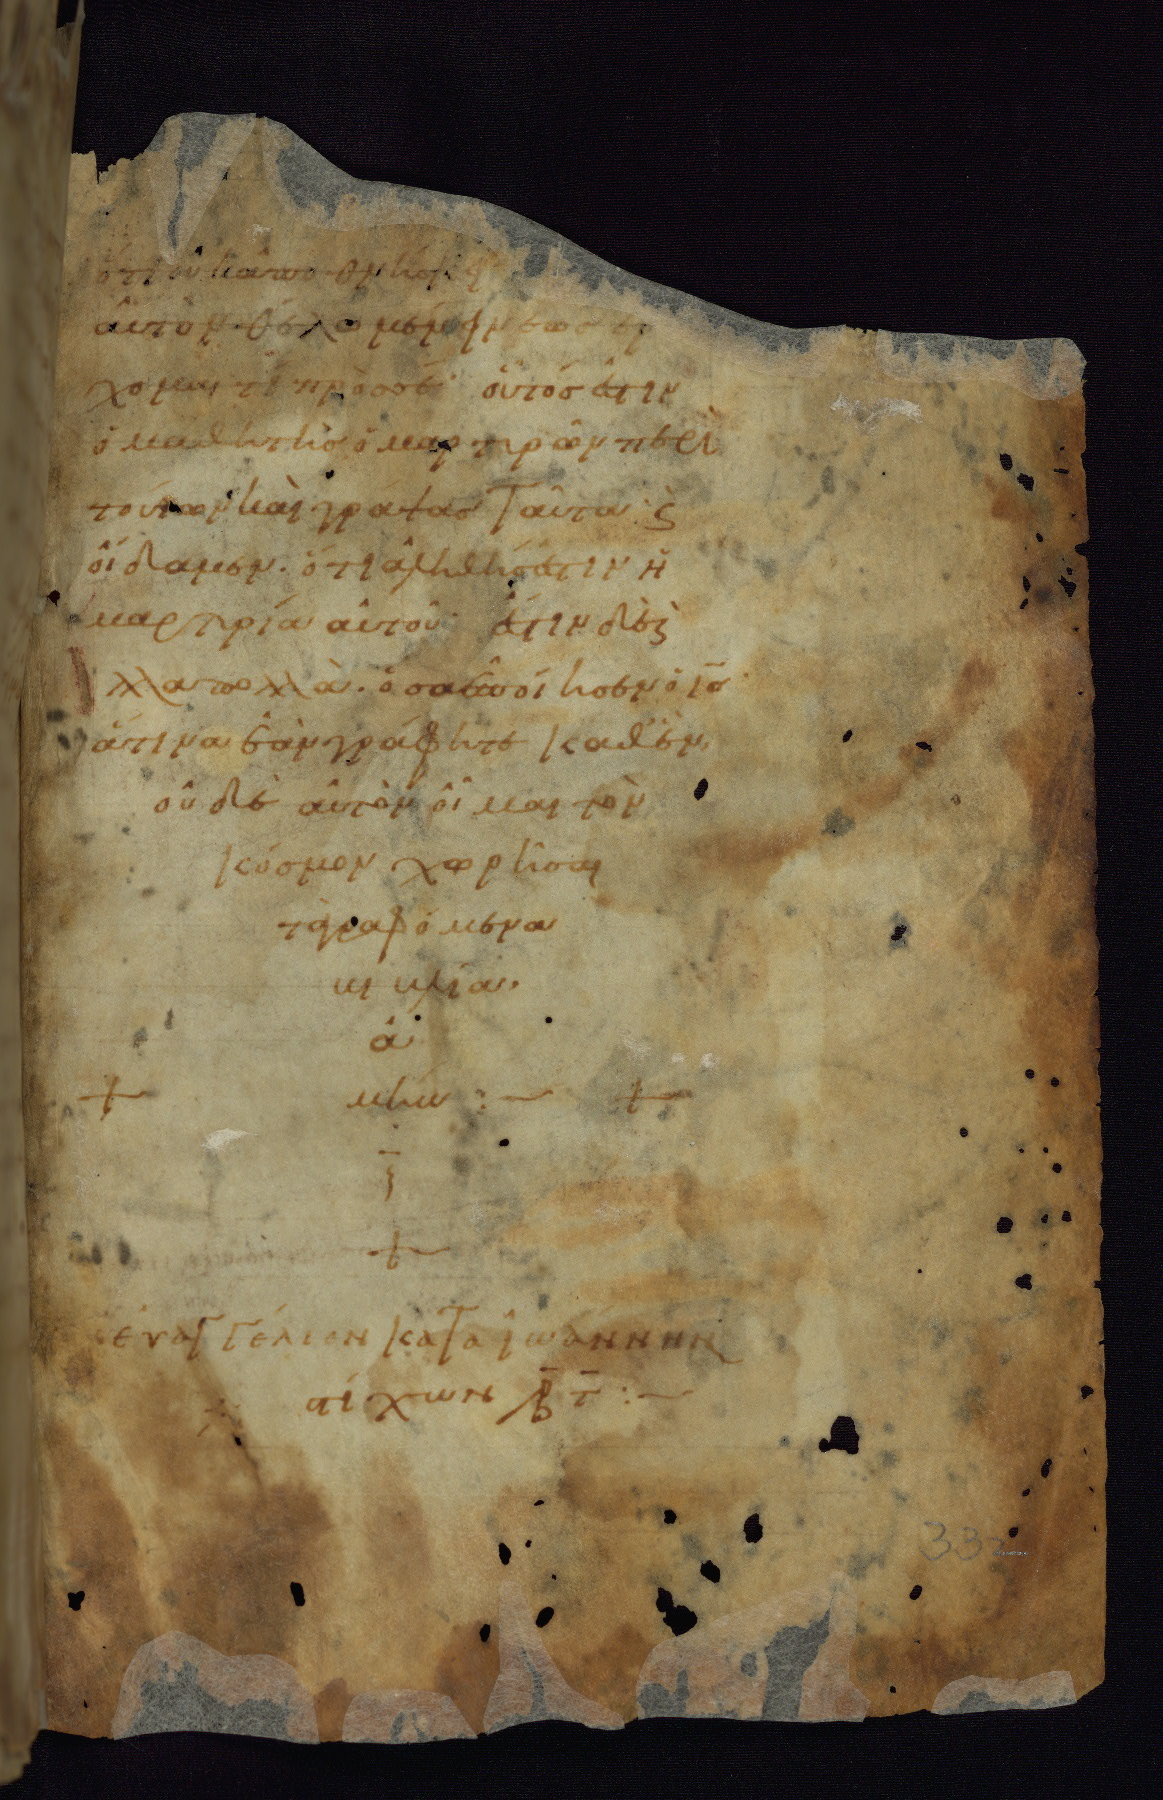 ὅτι οὐκ ἀποθνήσκ
αὐτὸν θέλω μένειν ἕως ἔρ
χομαι τί πρὸς σέ· οὗτός ἐστιν
ὁ μαθητὴς ὁ μαρτυρῶν περὶ
τούτων καὶ γράψας ταῦτα· ϗ
οἴδαμεν· ὅτι ἀληθής ἐστιν ἡ
μαρτυρία αὐτοῦ· ἔστιν δὲ ϗ
ἄλλα πολλὰ· ὅσα ἐποίησεν ὁ ι̅ς̅
ἅτινα ἐὰν γράφητε καθ' ἕν,
οὐδὲ αὐτὸν οἶμαι τὸν
κόσμον χωρῆσαι
τὰ γραφόμενα
βιβλία.
ἀ
μήν :— +
+
εὐαγγέλιον κατα ἰωάννην
στίχων ͵β̅ τ̅ :—
332